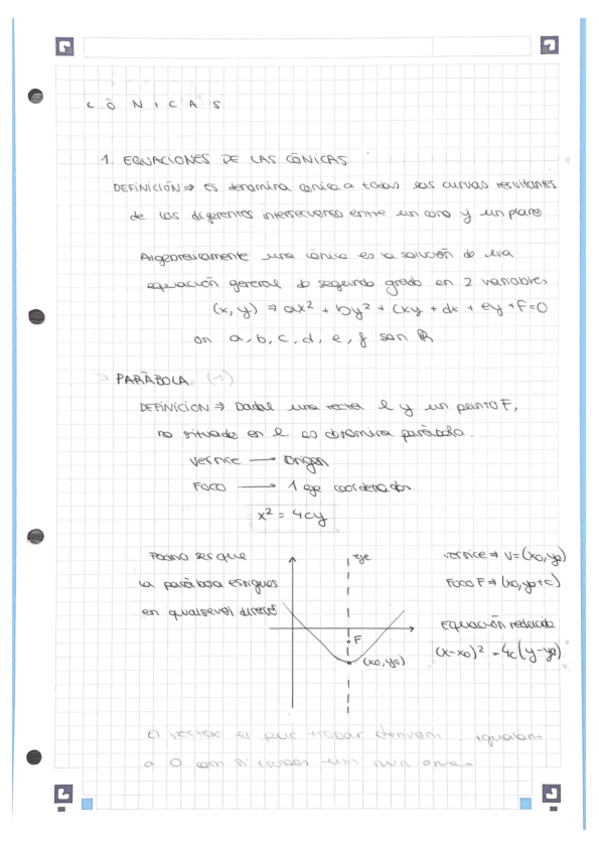 CÒNICAS
1. EQUACIONES DE LAS CÓNICAS
DEFINICIÓN ⇒ Es denomina cónica a todas las curvas resultantes
de las diferentes intersecciones entre un cono y un plano
Algebraicamente una cónica es la solución de una
equación general de segundo grado en 2 variables
(x, y) ⇒ ax² + by² + cxy + dx + ey + f = 0
on a, b, c, d, e, f son ℝ
PARÁBOLA (1)
DEFINICIÓN ⇒ una recta l y un punto F,
no situado en l es dnomina parábola.
Vertice → Origen
Foco → 1 eje
x² = 4cy
ser que
la parábola
en qualsevol
eje
F
(x0, y0)
Vertice ⇒ V = (x0, y0)
Foco F ⇒ (x0, y0+c)
Equación reducida
(x-x0)² = 4c(y-y0)
El vertex el puc trobar derivant i igualant
a 0 com si